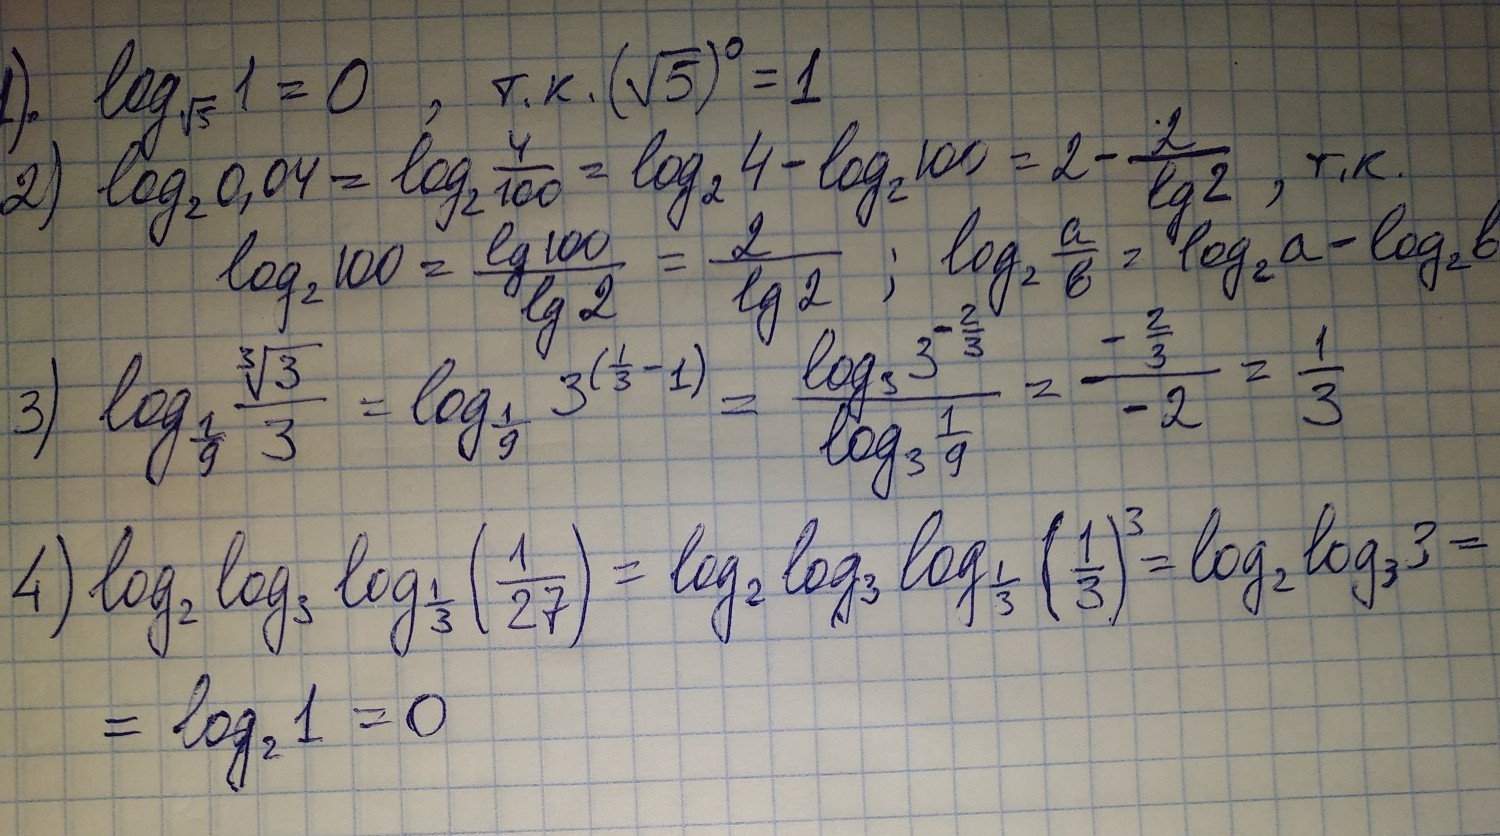 1). log_√5 1 = 0 , т.к. (√5)^0 = 1
2) log_2 0,04 = log_2 4/100 = log_2 4 - log_2 100 = 2 - 2/lg2 , т.к.
log_2 100 = lg100/lg2 = 2/lg2 ; log_2 a/b = log_2 a - log_2 b
3) log_1/9 ∛3/3 = log_1/9 3^(1/3 - 1) = log_3 3^-2/3 / log_3 1/9 = -2/3 / -2 = 1/3
4) log_2 log_3 log_1/3 (1/27) = log_2 log_3 log_1/3 (1/3)^3 = log_2 log_3 3 =
= log_2 1 = 0